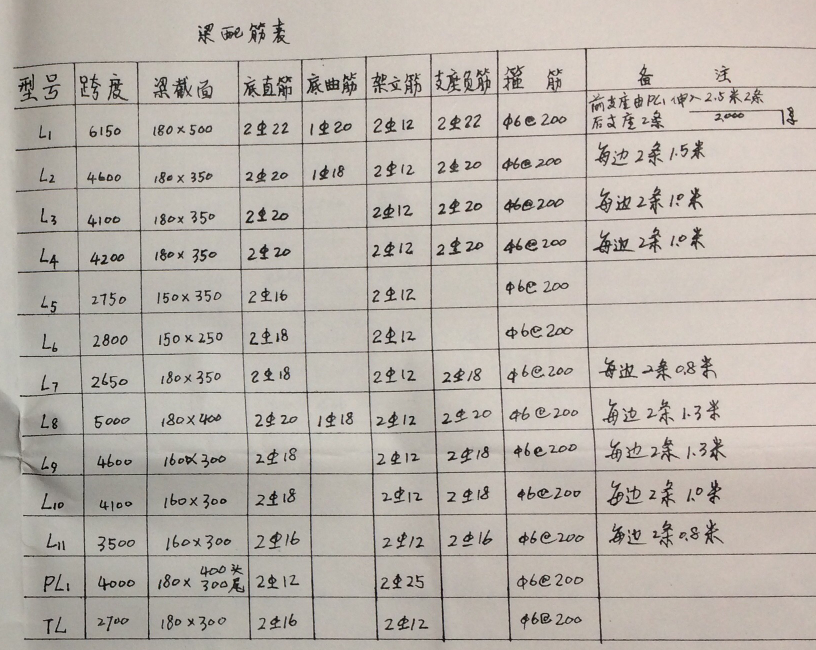 梁配筋表
型号 跨度 梁截面 底直筋 底曲筋 架立筋 支座负筋 箍筋 备注
L1 6150 180×500 2Φ22 1Φ20 2Φ12 2Φ22 Φ6@200 前支座由PL1伸入2.5米2条
后支座2条 2.000
L2 4600 180×350 2Φ20 1Φ18 2Φ12 2Φ20 Φ6@200 每边2条1.5米
L3 4100 180×350 2Φ20 2Φ12 2Φ20 Φ6@200 每边2条1.0米
L4 4200 180×350 2Φ20 2Φ12 2Φ20 Φ6@200 每边2条1.0米
L5 2750 150×350 2Φ16 2Φ12 Φ6@200
L6 2800 150×250 2Φ18 2Φ12 Φ6@200
L7 2650 180×350 2Φ18 2Φ12 2Φ18 Φ6@200 每边2条0.8米
L8 5000 180×400 2Φ20 1Φ18 2Φ12 2Φ20 Φ6@200 每边2条1.3米
L9 4600 160×300 2Φ18 2Φ12 2Φ18 Φ6@200 每边2条1.3米
L10 4100 160×300 2Φ18 2Φ12 2Φ18 Φ6@200 每边2条1.0米
L11 3500 160×300 2Φ16 2Φ12 2Φ16 Φ6@200 每边2条0.8米
PL1 4000 180×400头300尾 2Φ12 2Φ25 Φ6@200
TL 2700 180×300 2Φ16 2Φ12 Φ6@200